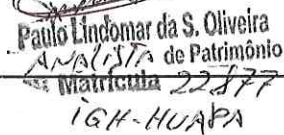 Paulo Lindomar da S. Oliveira
ANALISTA de Patrimônio
Matrícula 22877
IGH-HUAPA